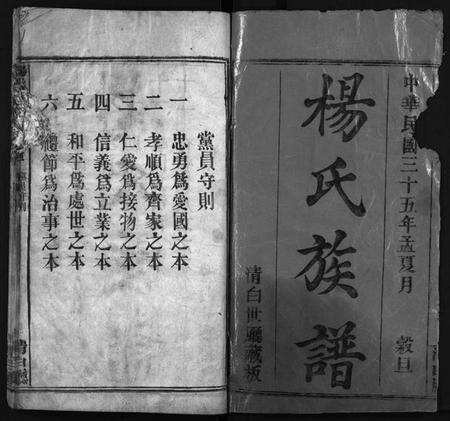 中華民國三十五年孟夏月 穀旦
楊氏族譜
清白世驪藏板
黨員守則
一 忠勇為愛國之本
二 孝順為齊家之本
三 仁愛為接物之本
四 信義為立業之本
五 和平為處世之本
六 禮節為治事之本